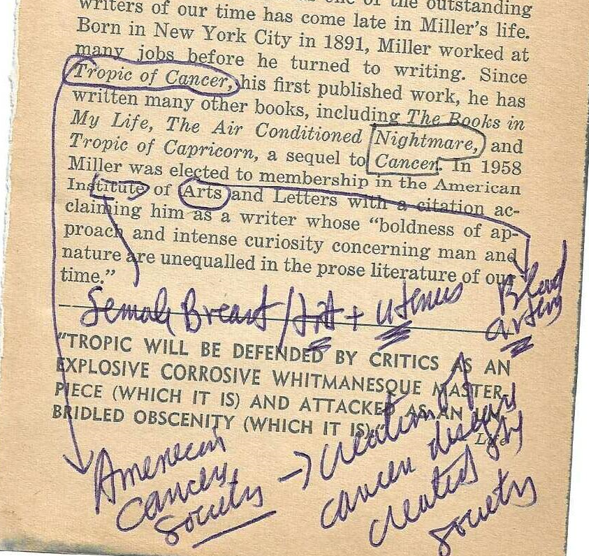 one of the outstanding
writers of our time has come late in Miller's life.
Born in New York City in 1891, Miller worked at
many jobs before he turned to writing. Since
Tropic of Cancer, his first published work, he has
written many other books, including The Books in
My Life, The Air Conditioned Nightmare, and
Tropic of Capricorn, a sequel to Cancer. In 1958
Miller was elected to membership in the American
Institute of Arts and Letters with a citation ac-
claiming him as a writer whose "boldness of ap-
proach and intense curiosity concerning man and
nature are unequalled in the prose literature of our
time."
Female Breast/tit + uterus
Blood
artery
"TROPIC WILL BE DEFENDED BY CRITICS AS AN
EXPLOSIVE CORROSIVE WHITMANESQUE MASTER-
PIECE (WHICH IT IS) AND ATTACKED AS AN UN-
BRIDLED OBSCENITY (WHICH IT IS)."
Life
American
Cancer
Society
→ creation of
cancer disease
created by
society